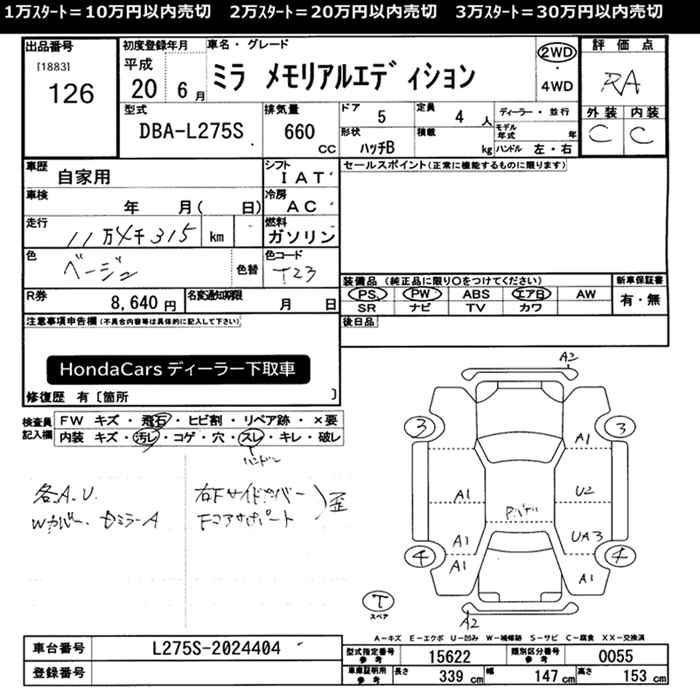 1万スタート=10万円以内売切 2万スタート=20万円以内売切 3万スタート=30万円以内売切
出品番号 初度登録年月 車名・グレード 評価点
[1883] 平成 2WD
126 20 6月 ミラ メモリアルエディション ・ RA
4WD
型式 排気量 ドア 定員 ディーラー・並行 外装 内装
DBA-L275S 660 cc 5 4人 モデル年式 年 C C
形状 ハッチB 積載 kg ハンドル 左・右
車歴 シフト セールスポイント(正常に機能するものに限ります)
自家用 IAT
車検 冷房
年 月( 日) AC
走行 燃料
11万4千315 km ガソリン
色 色コード
ベージュ 色替 T23
装備品(純正品に限り○をつけてください) 新車保証書
R券 8,640円 名変通知期限 月 日 PS PW ABS エアB AW 有・無
SR ナビ TV カワ
注意事項申告欄(不具合内容等は具体的に記入して下さい) 後日品
HondaCars ディーラー下取車
修復歴 有[箇所 ]
検査員記入欄 FW キズ・飛石・ヒビ割・リペア跡・×要
内装 キズ・汚レ・コゲ・穴・スレ・キレ・破レ
ハンドル
各A.U. 右Fサイドカバー
Wカバー. Dミラ-A Fコアサポート 歪
A2
3 3
A1
A1 U2
Rパネル
A1 UA3
4 A1 A1 4
T
スペア A2
A-キズ E-エクボ U-凹み W-補修跡 S-サビ C-腐食 XX-交換済
車台番号 L275S-2024404 型式指定番号 参考 15622 類別区分番号 参考 0055
登録番号 車庫証明用 参考 長さ 339cm 幅 147cm 高さ 153cm